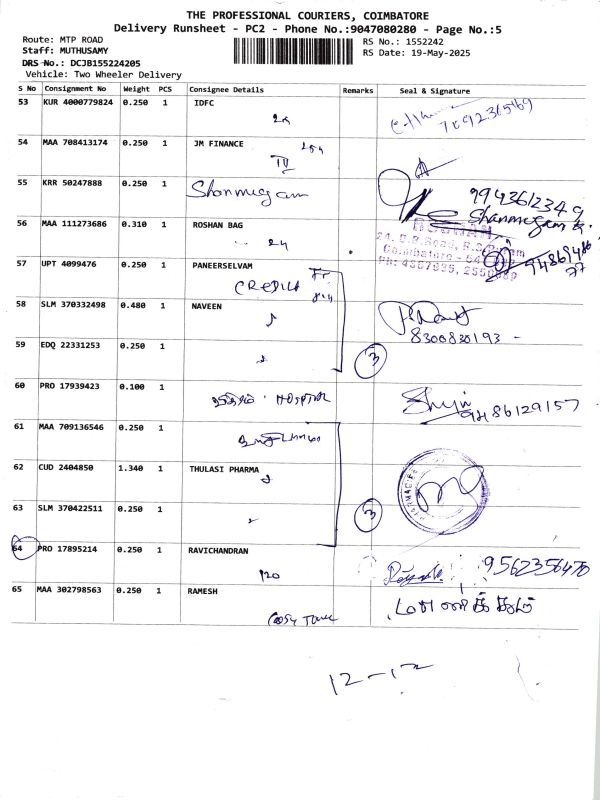 THE PROFESSIONAL COURIERS, COIMBATORE
Delivery Runsheet - PC2 - Phone No.:9047080280 - Page No.:5
Route: MTP ROAD
RS No.: 1552242
Staff: MUTHUSAMY
RS Date: 19-May-2025
DRS No.: DCJB155224205
Vehicle: Two Wheeler Delivery
S No Consignment No Weight PCS Consignee Details Remarks Seal & Signature
53 KUR 4000779824 0.250 1 IDFC
7092365469
54 MAA 708413174 0.250 1 JM FINANCE
55 KRR 50247888 0.250 1 Shanmugam
9943612349
Shanmugam
56 MAA 111273686 0.310 1 ROSHAN BAG
24
57 UPT 4099476 0.250 1 PANEERSELVAM
CREDILA
58 SLM 370332498 0.480 1 NAVEEN
8300830193
59 EDQ 22331253 0.250 1
3
60 PRO 17939423 0.100 1
HOSPITAL
9486129157
61 MAA 709136546 0.250 1
62 CUD 2404850 1.340 1 THULASI PHARMA
63 SLM 370422511 0.250 1
3
64 PRO 17895214 0.250 1 RAVICHANDRAN
120
9562356470
65 MAA 302798563 0.250 1 RAMESH
12-12